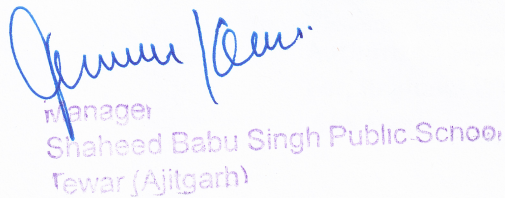 Manager
Shaheed Babu Singh Public School
Tewar (Ajitgarh)